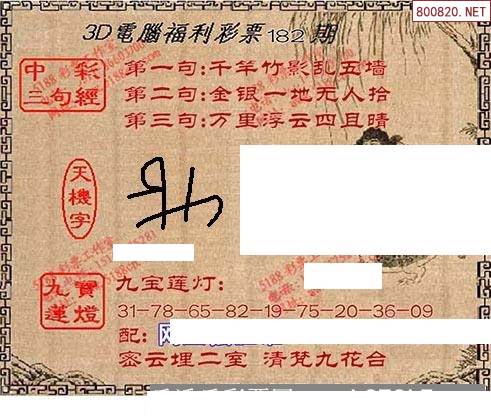 800820.NET
3D電腦福利彩票182期
中彩三句經
第一句:千竿竹影乱五墙
第二句:金银一地无人拾
第三句:万里浮云四且晴
天機字
九寶蓮燈
九宝莲灯:
31-78-65-82-19-75-20-36-09
配:
密云埋二室 清梵九花台